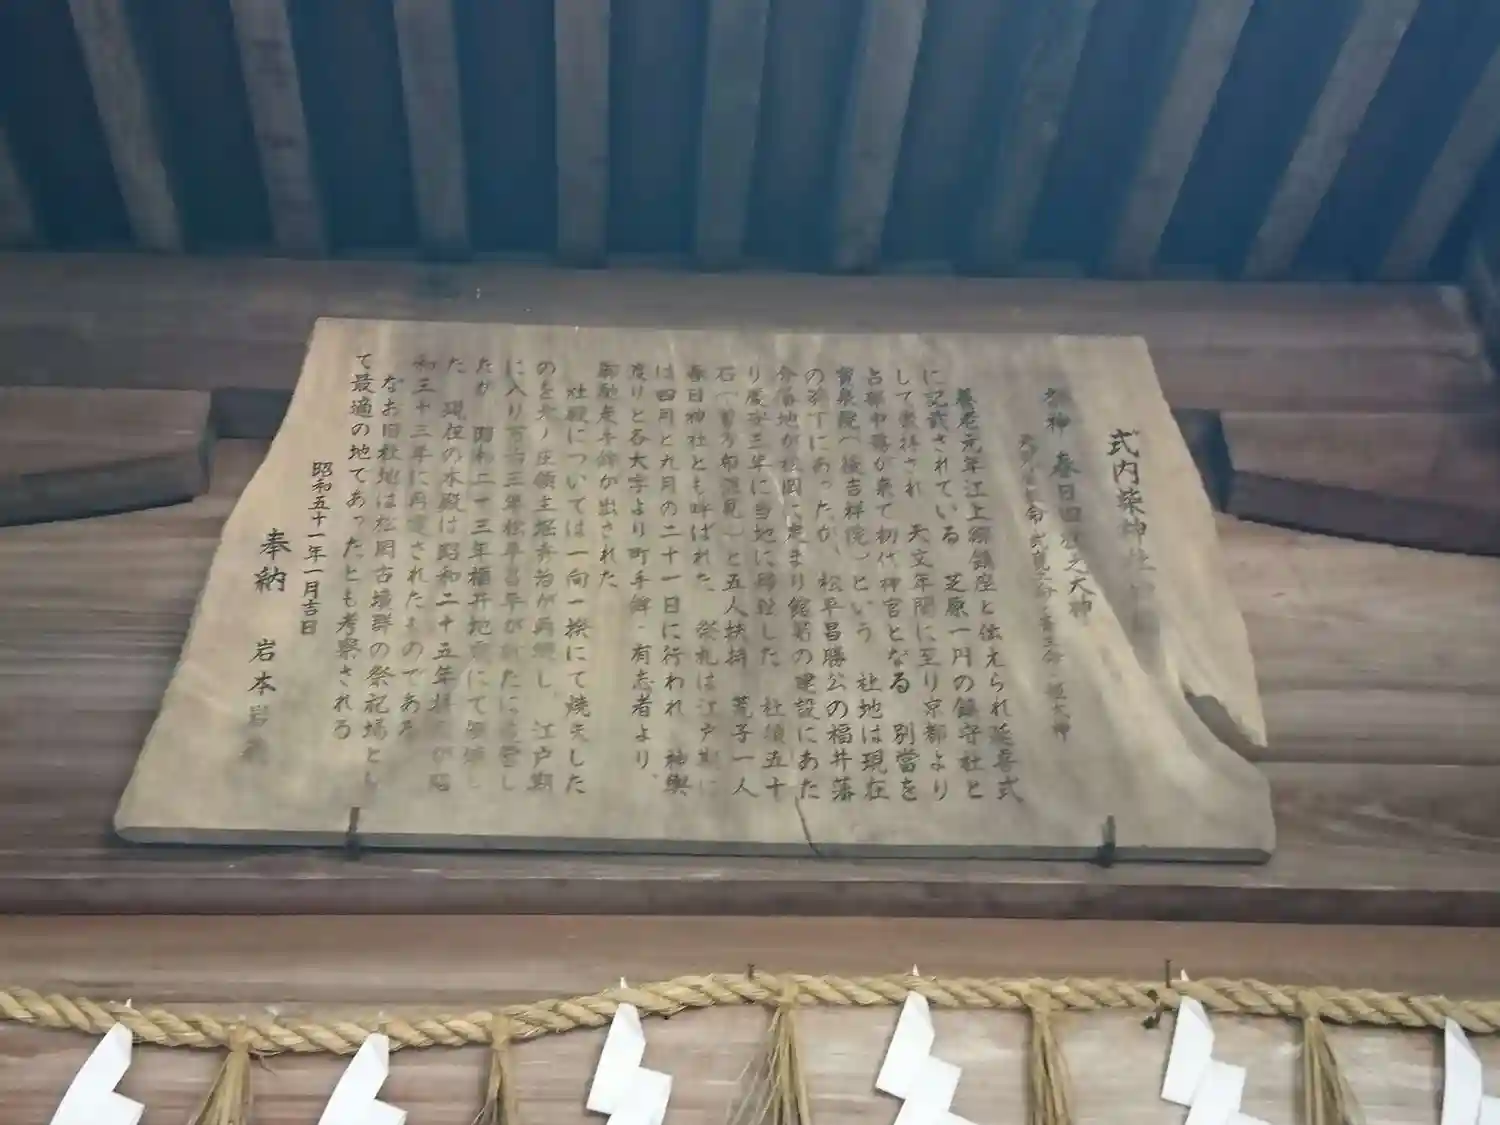 式内柴神社
祭神 春日四社之大神
養老元年江上郷鎮座と伝えられ延喜式
に記載されている 芝原一円の鎮守社と
して崇拝され 天文年間に至り京都より
占部中務が来て初代神官となる 別當を
宝泉院(後吉祥院)という 社地は現在
の済丁にあったが、松平昌勝公の福井藩
分藩地が松岡に定まり館等の建設にあた
り慶安三年に当地に移址した 社領五十
石(曽万布深見)と五人扶持 荒子一人
春日神社とも呼ばれた 祭礼は江戸期に
は四月と九月の二十一日に行われ 神輿
渡りと各大字より町手鉾・有志者より
御馳走手鉾が出された
社殿については一向一揆にて焼失した
のを 領主堀 が再興し 江戸期
に入り 三年松平昌平が新たに造営し
たが 昭和二十三年福井地震にて倒壊し
た 現在の本殿は昭和二十五年 昭
和三十三年に再建されたものである
なお旧社地は松岡古墳群の祭祀場とし
て最適の地であったとも考察される
昭和五十一年一月吉日
奉納 岩本